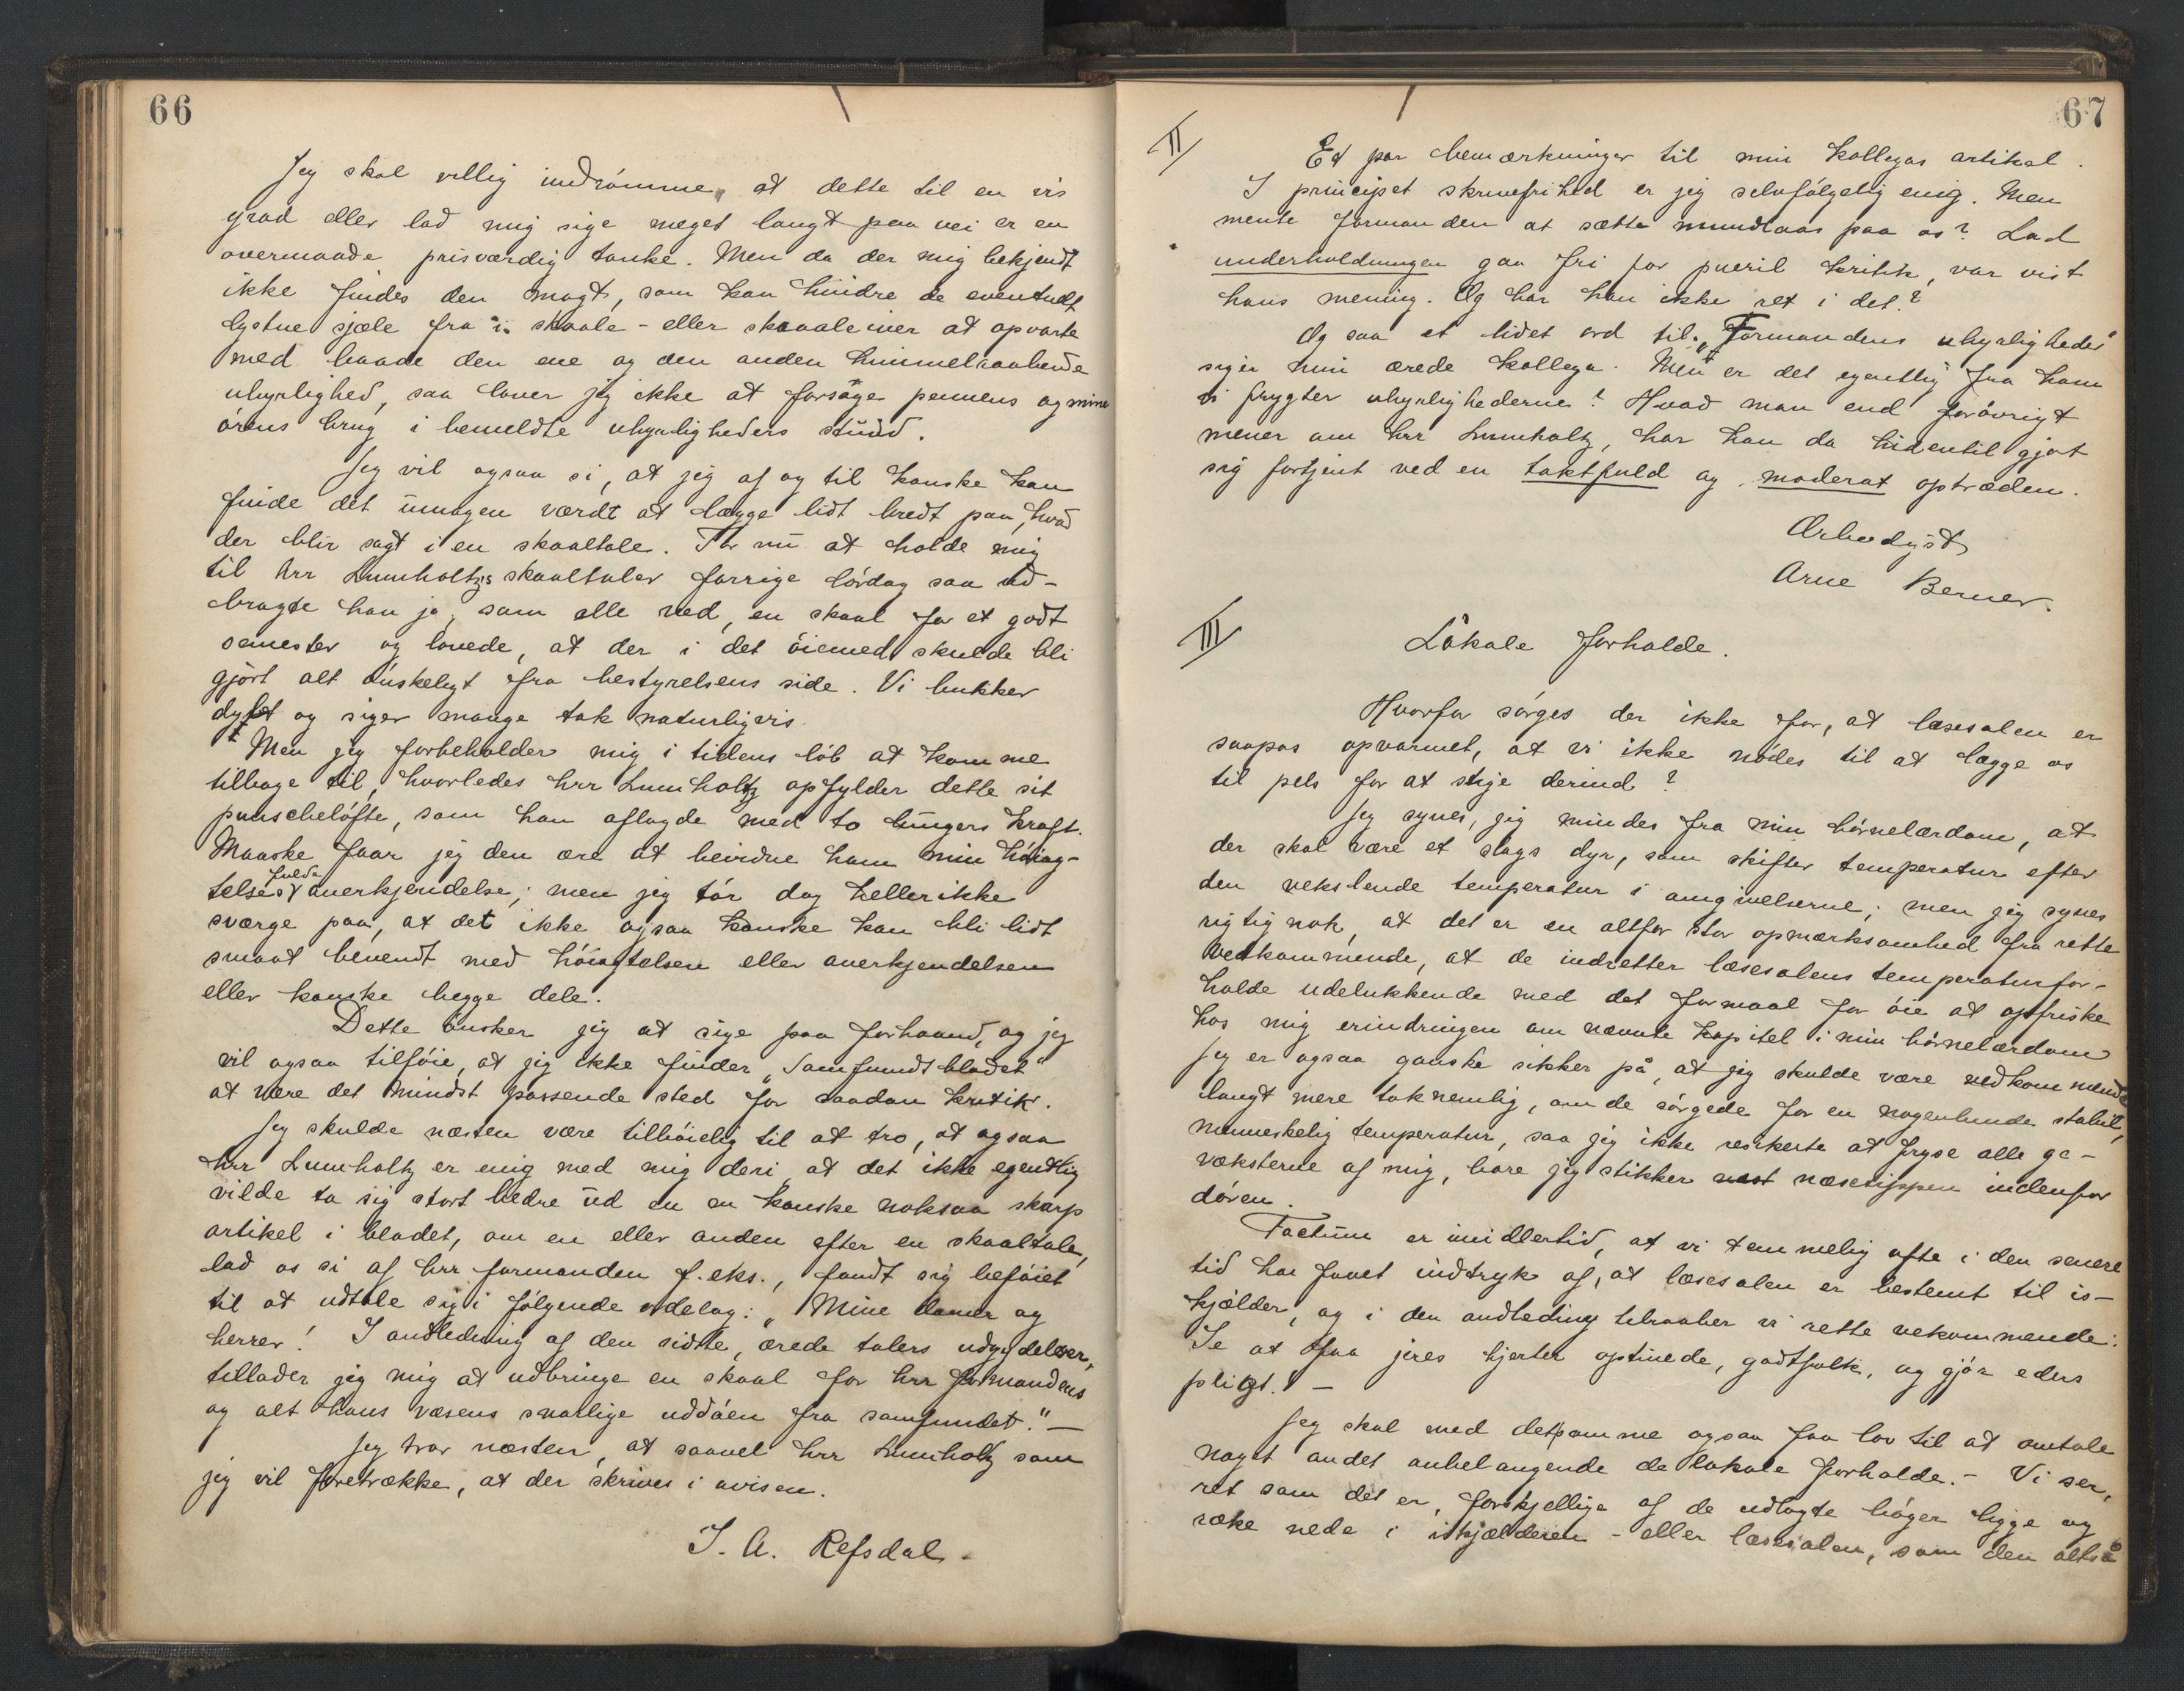 66
Jeg skal villig indrømme, at dette til en vis
grad eller lad mig sige meget langt paa vei er en
overmaade prisværdig tanke. Men da der mig bekjendt
ikke findes den magt, som kan hindre de eventuelt
lystne sjæle fra i skaale- eller skaaleiver at opvarte
med baade den ene og den anden himmelraabende
uhyrlighed, saa lover jeg ikke at forsage pennens og mine
ørens brug i bemeldte uhyrligheders studd.
Jeg vil ogsaa si, at jeg af og til kanske kan
finde det umagen værdt at lægge lidt bredt paa, hvad
der blir sagt i en skaaltale. For nu at holde mig
til hrr Lumholtz's skaaltaler forrige lørdag saa ud-
bragte han jo, som alle ved, en skaal for et godt
semester og lovede, at der i det øiemed skulde bli
gjørt alt ønskeligt fra bestyrelsens side. Vi bukker
dybt og siger mange tak naturligvis.
Men jeg forbeholder mig i tidens løb at komme
tilbage til, hvorledes hrr Lumholtz opfylder dette sit
punscheløfte, som han aflagde med to lungers kraft.
Maaske faar jeg den ære at bevidne ham min høiag-
telsesfulde anerkjendelse; men jeg tør dog heller ikke
sværge paa, at det ikke ogsaa kanske kan bli lidt
smaat bevendt med høiagtelsen eller anerkjendelsen
eller kanske begge dele.
Dette ønsker jeg at sige paa forhaand, og jeg
vil ogsaa tilføie, at jeg ikke finder „Samfundtbladet“
at være det mindst passende sted for saadan kritik.
Jeg skulde næsten være tilbøielig til at tro, at ogsaa
hrr Lumholtz er enig med mig deri, at det ikke egentlig
vilde ta sig stort bedre ud en en kanske noksaa skarp
artikel i bladet, om en eller anden efter en skaaltale,
lad os si af hrr formanden f. eks., fandt sig beføiet
til at udtale sig i følgende ordelag: „Mine damer og
herrer! I andledning af den sidste, ærede talers udgydelser,
tillader jeg mig at udbringe en skaal for hrr formandens
og alt hans væsens snarlige uddøen fra samfundet.“ —
Jeg tror næsten, at saavel hrr Lumholtz som
jeg vil foretrække, at der skrives i avisen.
I. A. Refsdal.
67
II
Et par bemærkninger til min kollegas artikel.
I principet skrivefrihed er jeg selvfølgelig enig. Men
mente formanden at sætte mundlaas paa os? Lad
underholdningen gaa fri for pueril kritik, var vist
hans mening. Og har han ikke ret i det?
Og saa et lidet ord til. „Formandens uhyrligheder“
siger min ærede kollega. Men er det egentlig fra ham
vi frygter uhyrlighederne? Hvad man end forøvrigt
mener om hrr Lumholtz, har han da hidentil gjort
sig fortjent ved en taktfuld og moderat optræden.
Ærbødigst
Arne Berner.
III
Lokale forholde.
Hvorfor sørges der ikke for, at læsesalen er
saapas opvarmet, at vi ikke nødes til at lægge os
til pels for at stige derind?
Jeg synes, jeg mindes fra min børnelærdom, at
der skal være et slags dyr, som skifter temperatur efter
den vekslende temperatur i omgivelserne; men jeg synes
rigtignok, at det er en altfor stor opmærksomhed fra rette
vedkommende, at de indretter læsesalens temperaturfor-
holde udelukkende med det formaal for øie at opfriske
hos mig erindringen om nævnte kapitel i min børnelærdom
Jeg er ogsaa ganske sikker på, at jeg skulde være vedkommende
langt mere taknemlig, om de sørgede for en nogenlunde stabil,
menneskelig temperatur, saa jeg ikke resikerte at fryse alle ge-
væksterne af mig, bare jeg stikker næsetippen indenfor
døren.
Factum er imidlertid, at vi temmelig ofte i den senere
tid har faaet indtryk af, at læsesalen er bestemt til is-
kjælder, og i den andleding tilraaber vi rette vekommende:
Se at faa jeres hjerter optinede, godtfolk, og gjør eders
pligt! —
Jeg skal med detsamme ogsaa faa lov til at omtale
noget andet anbelangende de lokale forholde. – Vi ser,
ret som det er, forskjellige af de udlagte bøger ligge og
ræke nede i iskjælderen – eller læsesalen, som den altså